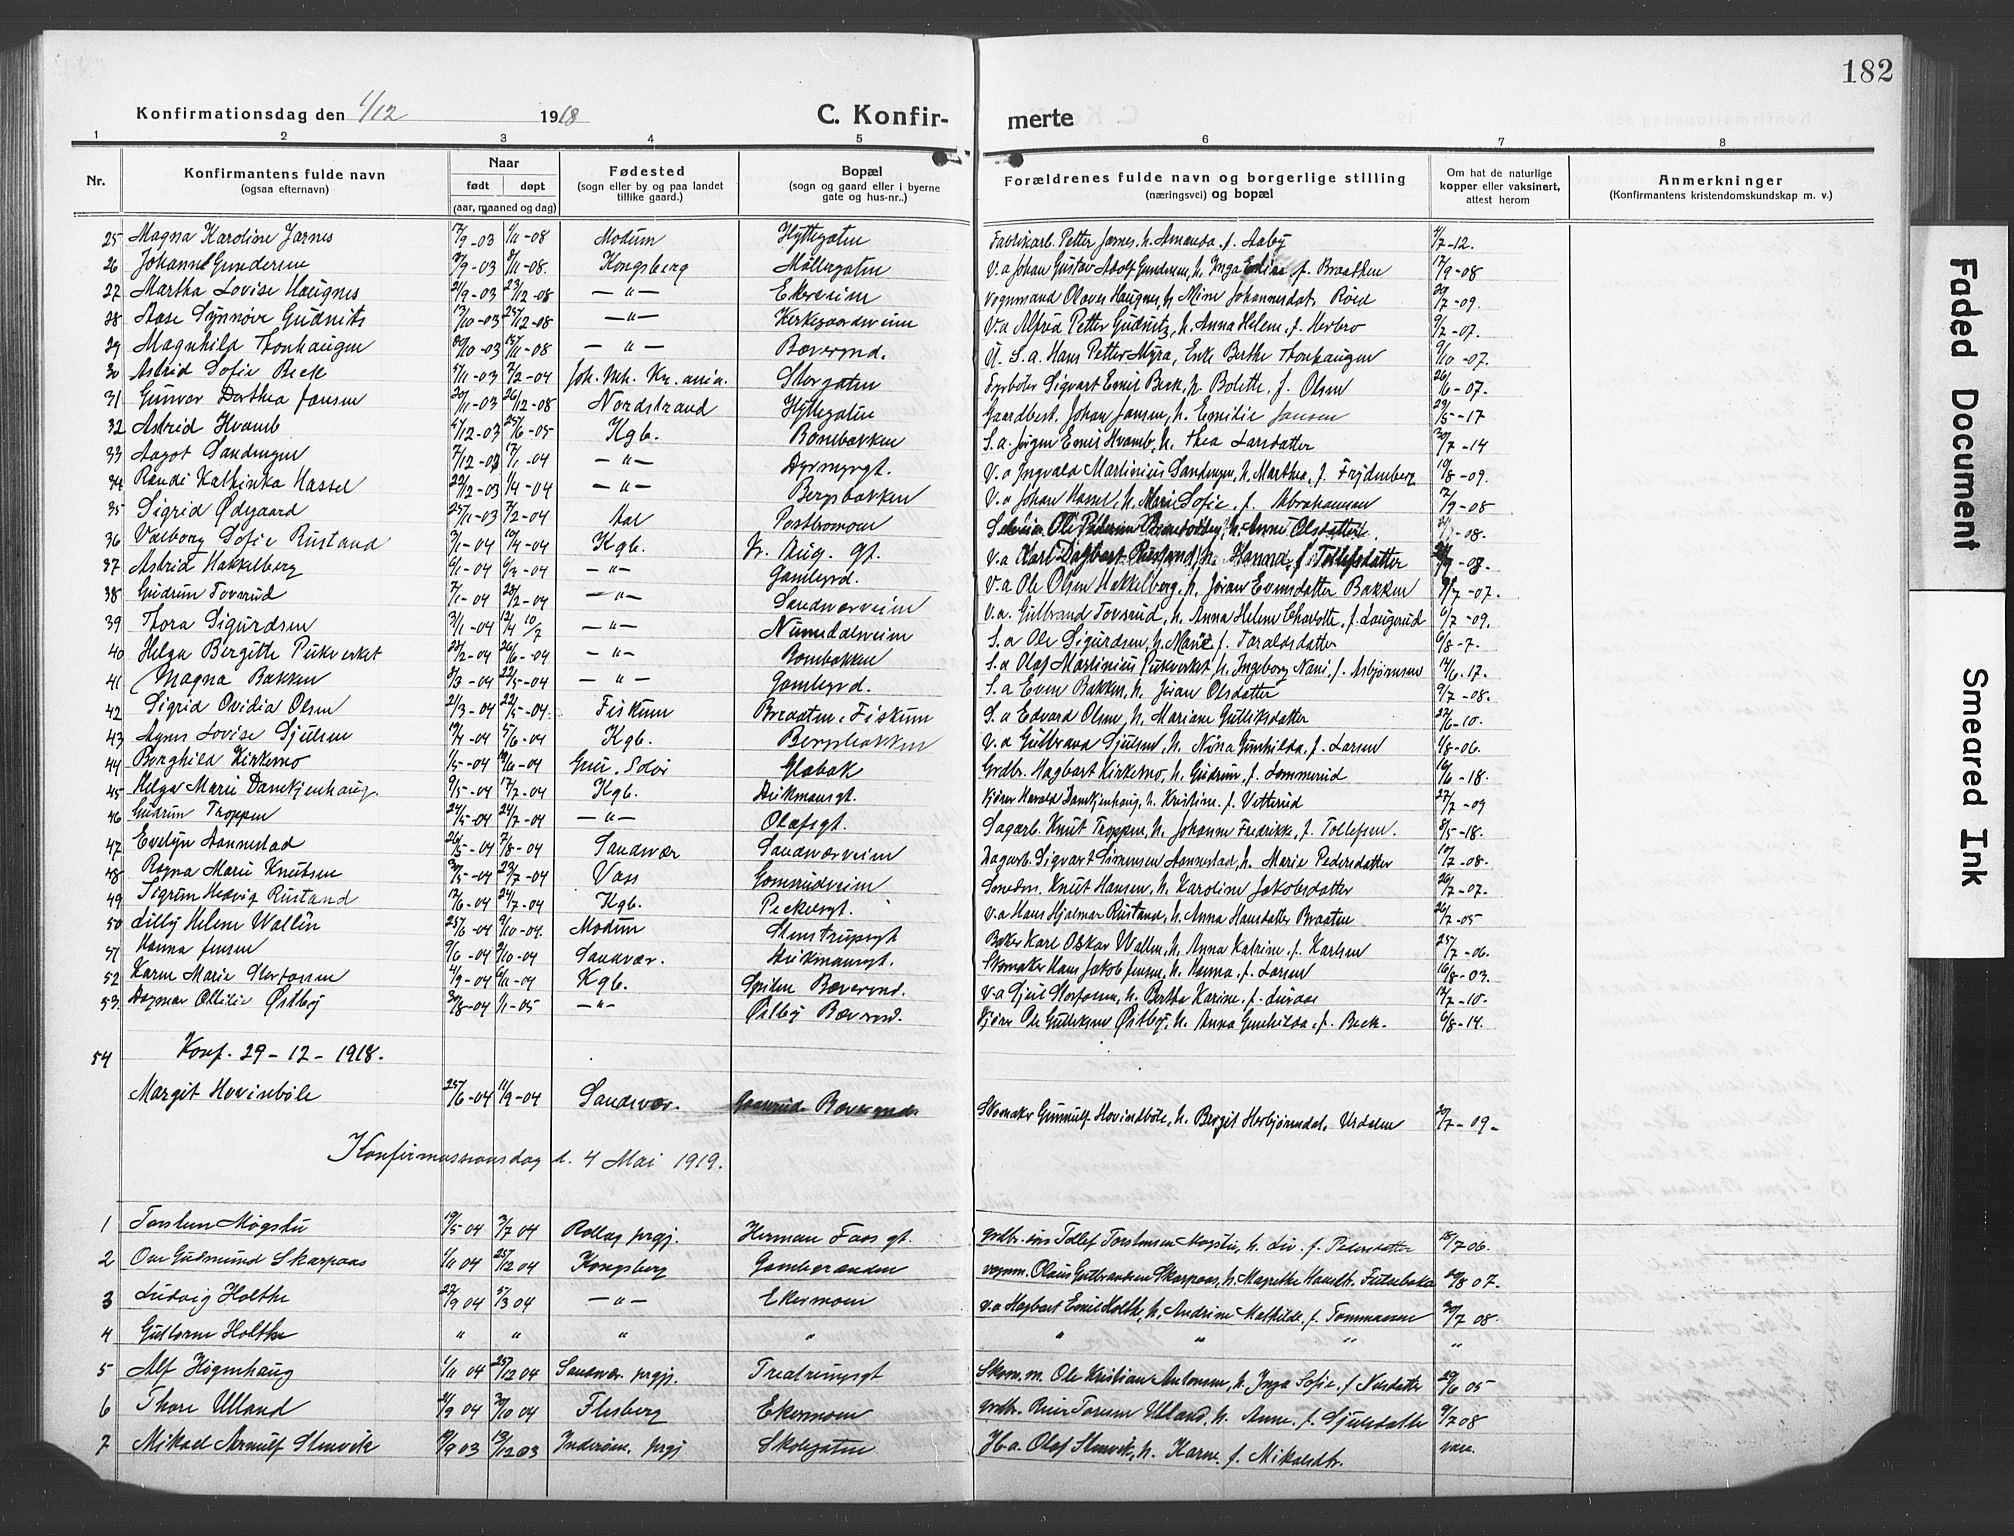 182
Konfirmationsdag den 1/12 1918 C. Konfir- merte
1 2 3 4 5 6 7 8
Nr. Konfirmantens fulde navn (ogsaa efternavn) Naar født døpt (aar, maaned og dag) Fødested (sogn eller by og paa landet tillike gaard.) Bopæl (sogn og gaard eller i byerne gate og hus-nr..) Forældrenes fulde navn og borgerlige stilling (næringsvei) og bopæl Om hat de naturlige kopper eller vaksinert, attest herom Anmerkninger (Konfirmantens kristendomskundskap m. v.)
25 Magna Karoline Jarnes 17/9-03 1/11-08 Modum Hyttegaten Fabrikarb. Petter Jarnes, h. Amanda f. Aaby 4/7-12.
26 Johanne Gundersen /9-03 /11-08. Kongsberg Møllergaten V.a Johan Gustav Adolf Gundersen, h. Inga f. Braathen 17/9-08
27 Martha Lovise Haugnes 21/9-03 23/12-08 —"— Ekerveien Vognmand Olaves Haugnes, h. Mine Johannesdat. Røed 29/7-09.
28 Aase Synnøve Gudnits 13/10-03 25/12-08 —"— Kirkegaardsveien V.a Alfred Petter Gudnitz, h. Anna Helene f. Herbro 9/7-07.
29 Magnhild Tonhaugen 20/10-03 15/11-08 —"— Bæverend. U. S. a. Hans Petter Myra, Enke Berthe Tonhaugen 9/10-07.
30 Astrid Sofie Beck 5/11-03 7/2-04 Joh. Mh. Kr.ania. Storgaten Fyrbøter Sigvart Emil Beck, h. Bolette f. Olsen 26/6-07.
31 Gunvor Dorthea Jansen 20/11-03 26/12-08 Nordstrand Hyttegaten Gaardbest. Johan Jansen, h. Emilie Jansen 23/5-17
32 Astrid Hvamb /12-03 25/6-05 Kgb. Bombakken S.a. Jørgen Emil Hvamb, h. Thea Larsdatter 30/7-14
33 Aagot Sandengen 7/12-03 17/1-04 —"— Dyrmyrgt. V.a Ingvald Martinius Sandengen, h. Marthea, f. Frydenberg 19/8-09.
34 Randi Kathinka Hassel 22/12-03 1/4-04 —"— Bergsbakken V.a Johan Hassel, h. Marie Sofie, f. Abrahamsen 12/9-08
35 Sigrid Ødegaard 25/11-03 7/2-04 Aal Postbromoen Ole Pedersen h. Anne Olsdatter. -08.
36 Valborg Sofie Rustand 3/1-04 10/4-04 Kgb. Kr. Aug. gt. V.a Karl Dagbart Rustand, h. Hanna f. Tollefsdatter -08.
37 Astrid Hakkelberg 6/1-04 6/3-04 —"— Gamlegrd. V.a Ole Olsen Hakkelberg, h. Jøran Evensdatter Bakken 9/7-07.
38 Gudrun Tovsrud 7/1-04 28/2-04 —"— Sandsværveien V.a. Gulbrand Tovsrud, h. Anna Helene Charlotte, f. Laugerud 6/7-09.
39 Thora Sigurdsen 31/1-04 12/4 10/7 —"— Numedalsveien S.a Ole Sigurdsen, h. Marie f. Taraldsdatter 6/8-7.
40 Helga Bergitte Pukverket 23/2-04 26/6-04 —"— Bombakken S.a Olaf Martinius Pukverket h. Ingeborg Nani f. Asbjørnsen 14/6.17
41 Magna Bakken 8/3-04 22/5-04 —"— Gamlegrd. S.a Even Bakken, h. Jøran Olsdatter 9/7-08.
42 Sigrid Ovidia Olsen 21/3-04 22/5-04. Fiskum Braaten, Fiskum S.a Edvard Olsen, h. Mariane Gulliksdatter 27/6-10.
43 Agnes Lovise Sjulsen 17/4-04 5/6-04 Kgb. Bergsbakken V.a Gulbrand Sjulsen, h. Nina Gunhilda, f. Larsen 1/8-06.
44 Borghild Kirkemo 1/5-04 19/6-04 Grue, Solør Glabak Grdbr. Hagbart Kirkemo, h. Gudrun, f. Lommerud 10/6-18.
45 Helga Marie Damkjenhaug. 9/5-04 17/7-04 Kgb. Dikmansgt. Kjører Harald Damkjenhaug, h. Kristine f. Vetterud 27/7-09
46 Gudrun Troppen 24/5-04 24/7-04 —"— Olafsgt. Sagarb. Knut Troppen, h. Johanne Fredrikke, f. Tollefsen. 8/5-18.
47 Evelyn Aannestad 26/5-04 7/8-04 Sandsvær Sandsværveien Dagarb. Sigvart Simensen Aannestad, h. Marie Pedersdatter 10/7-08.
48 Ragna Marie Knutsen 30/5-04 23/7-04 Vass Gomsrudveien Smedm. Knut Hansen, h. Karoline Jakobsdatter 26/7-07.
49 Sigrun Hedvig Rustand 12/6-04 24/7-04 Kgb. Peckelsgt. V.a Hans Hjalmar Rustand, h. Anna Hansdatter Braaten 26/7-05
50 Lilly Helene Wallèn 25/6-04 9/10-04. Modum Stenstrupsgt Baker Karl Oskar Wallen, h. Anna Katrine, f. Karlsen 25/7-06.
51 Hanna Jensen 9/6-04 2/10-04 Sandsvær. Dikmansgt. Skomaker Hans Jakob Jensen, h. Hanna, f. Larsen 16/8-03.
52 Karen Marie Stortaasen 4/9-04 6/11-04 Kgb. Spiten Bæverend. V.a Sjul Stortaasen, h. Bertha Karine, f. Luraas 12/7-10.
53. Dagmar Ottilie Østby 30/8-04 1/1-05 —"— Østby Bæverend. Kjører Ole Gulliksen Østby, h. Anna Gunhilda, f. Beck. 6/8-14.
54 Konf. 29-12-1918.
Margit Hovinbøle 25/6-04 11/9-04 Sandsvær. Bæverend. Skomaker Gunnulf Hovindbøle, h. Bergit Herbjørnsdat. Urdalen 20/7-09-
Konfirmassionsdag d. 4 Mai 1919.
1 Torsten Mogstu 19/5 04 3/7 04 Rollag prgj. Herman Foss gt. grdbr. Tollef Torstensen Mogstu, h. Liv f. Pedersdatter 18/7 06.
2 Ove Gudmund Skarpaas 1/11 04 25/12 04 Kongsberg Gamlegrænden vognm. Olaus Gulbrandsen Skarpaas, h. Magrethe Hansdt. Futebakk 20/8 07.
3 Ludvig Holthe 27/9 04 5/3 04 —"— Ekermoen V.a Hagbart Emil Holthe, h. Andrine Mathilde f. Tommassen 30/7 08.
4 Guttorm Holthe " " " " " " " "
5 Alf Høgenhaug 1/11 04 25/12 04 Sandsvær prgj. Tredreiergt Skom.m. Ole Kristian Antonsen, h. Inga Sofie f. Nilsdatter 29/6 05
6 Thore Ulland 21/9 04 30/10 04 Flesberg Ekermoen grdbr. Reier Toresen Ulland, h. Anne f. Sjulsdatter 9/7 08
7 Mikael Arnulf Stenvik 19/9 03 13/12 03 Inderøen prgj Skolegaten H.a. Olaf Stenvik, h. Karen f. Mikalsdtr. vacc.
Faded Document
Smeared Ink